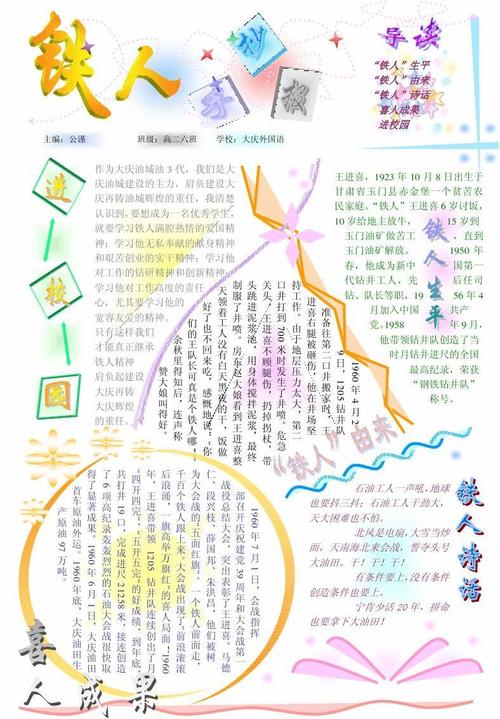 铁人
手抄报
导读
“铁人”生平
“铁人”由来
“铁人”诗话
喜人成果
进校园
主编：公谨 班级：高二六班 学校：大庆外国语
进校园
作为大庆油城油3代，我们是大
庆油城建设的主力，肩负建设大
庆再铸油城辉煌的重任，我清楚
认识到，要想成为一名优秀学生，
就要学习铁人满腔热情的爱国精
神；学习他无私奉献的献身精神
和艰苦创业的实干精神；学习他
对工作的钻研精神和创新精神；
学习他对工作高度的责任
心，尤其要学习他的
宽容友爱的精神。
只有这样我们
才能真正继承
铁人精神
肩负起建设
大庆再铸
大庆辉煌
的重任。
王进喜，1923年10月8日出生于
甘肃省玉门县赤金堡一个贫苦农
民家庭。“铁人”王进喜6岁讨饭，
10岁给地主放牛， 15岁到
玉门油矿做苦工 ，直到
玉门油矿解放。 1950年
春，他成为新中 国第一
代钻井工人，先 后任司
钻、队长等职，19 56年4
月加入中国共产 党。1958
年9月，
他带领钻井队创造了当
时月钻井进尺的全国
最高纪录，荣获
“钢铁钻井队”
称号。
铁人生平
1960年4月2
9日，1205钻井队
准备往第二口井搬家时，
王进喜右腿被砸伤，他在井场坚
持工作。由于地层压力太大，第二
口井打到700米时发生了井喷。危急
关头，王进喜不顾腿伤，扔掉拐杖，带
头跳进泥浆池，用身体搅拌泥浆，最终
制服了井喷。房东赵大娘看到王进喜整
天领着工人没有白天黑夜的干，饭做
好了也不回来吃，感慨地说：“你
们的王队长可真是个铁人哪！”
余秋里得知后，连声称
赞大娘叫得好。
“铁人”由来
1960年7月1日，会战指挥
部召开庆祝建党39周年和大会战第一
战役总结大会，突出表彰了王进喜、马德
仁、段兴枝、薛国邦、朱洪昌，他们被树
为大会战的“五面红旗”。一个铁人前面走，
千百个铁人跟上来，大会战出现了“前浪滚滚
后浪涌，一旗高举万旗红”的喜人局面。1960
年，王进喜带领1205钻井队连续创出了月
“四开四完”、“五开五完”的好成绩，到年底，
共打井19口，完成进尺21258米，接连创造
了6项高纪录轰轰烈烈的石油大会战很快取
得了显著成果。1960年6月1日，大庆油田
首车原油外运。1960年底，大庆油田生
产原油97万吨。
喜人成果
石油工人一声吼，地球
也要抖三抖；石油工人干劲大，
天大困难也不怕。
北风是电扇，大雪当炒
面，天南海北来会战，誓夺头号
大油田。干！干！干！
有条件要上，没有条件
创造条件也要上。
宁肯少活20年，拼命
也要拿下大油田！
铁人诗话